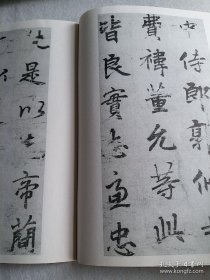 中侍郎郭攸
費禕董允等此
皆良實志慮忠
是以先帝蕳